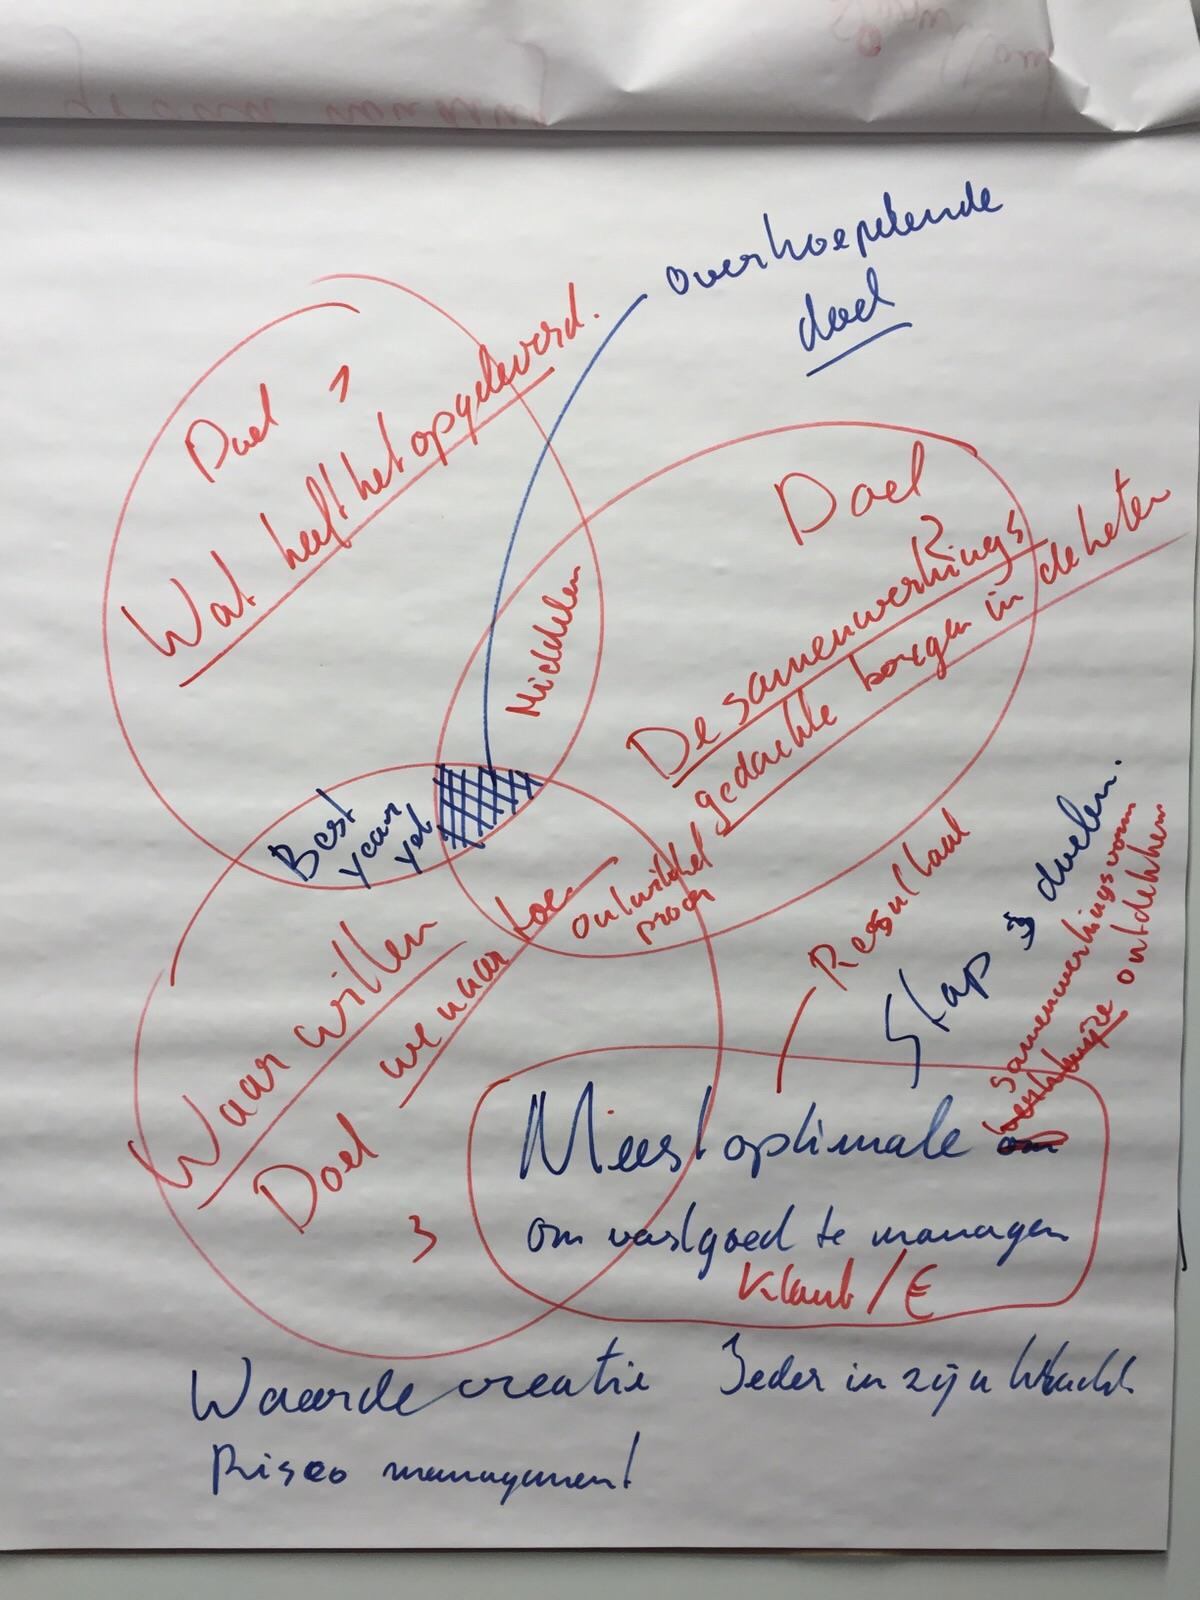 overkoepelende
doel
Doel 1
Wat heeft het opgeleverd.
Doel
2
De samenwerkings
gedachte borgen in de keten
Middelen
Best
year
yet
ontwikkel
proces
Waar willen
we naar toe
Doel
3
Resultaat
Stap 3 doelen.
samenwerkingsvorm
werkwijze ontdekken
Meest optimale
om vastgoed te managen
Klant / €
Waarde creatie Ieder in zijn kracht
Risico management